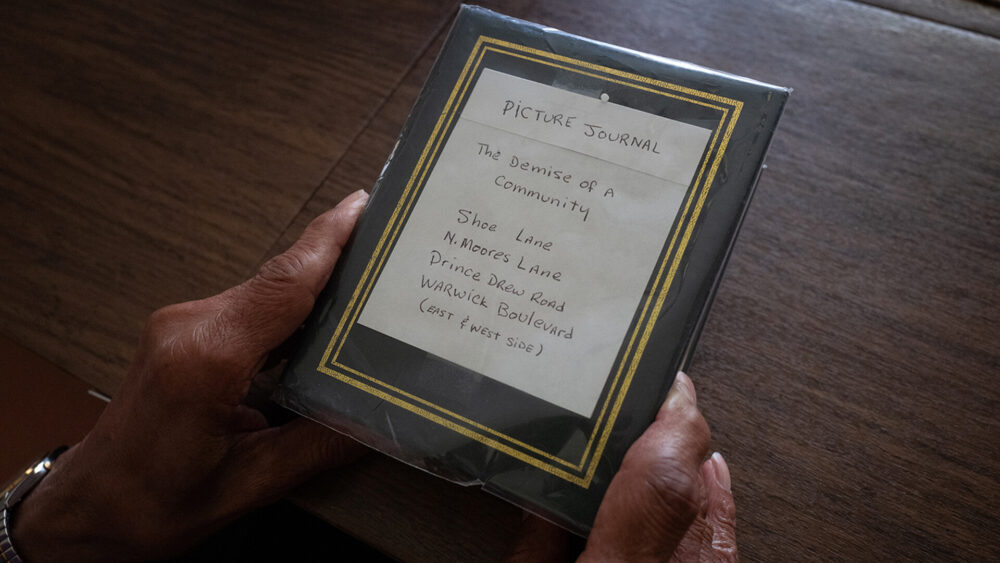 PiCTURE JOURNAL
The Demise of A
Community
Shoe Lane
N. Moores Lane
Prince Drew Road
WARwick Boulevard
(EAST & WEST SIDE)